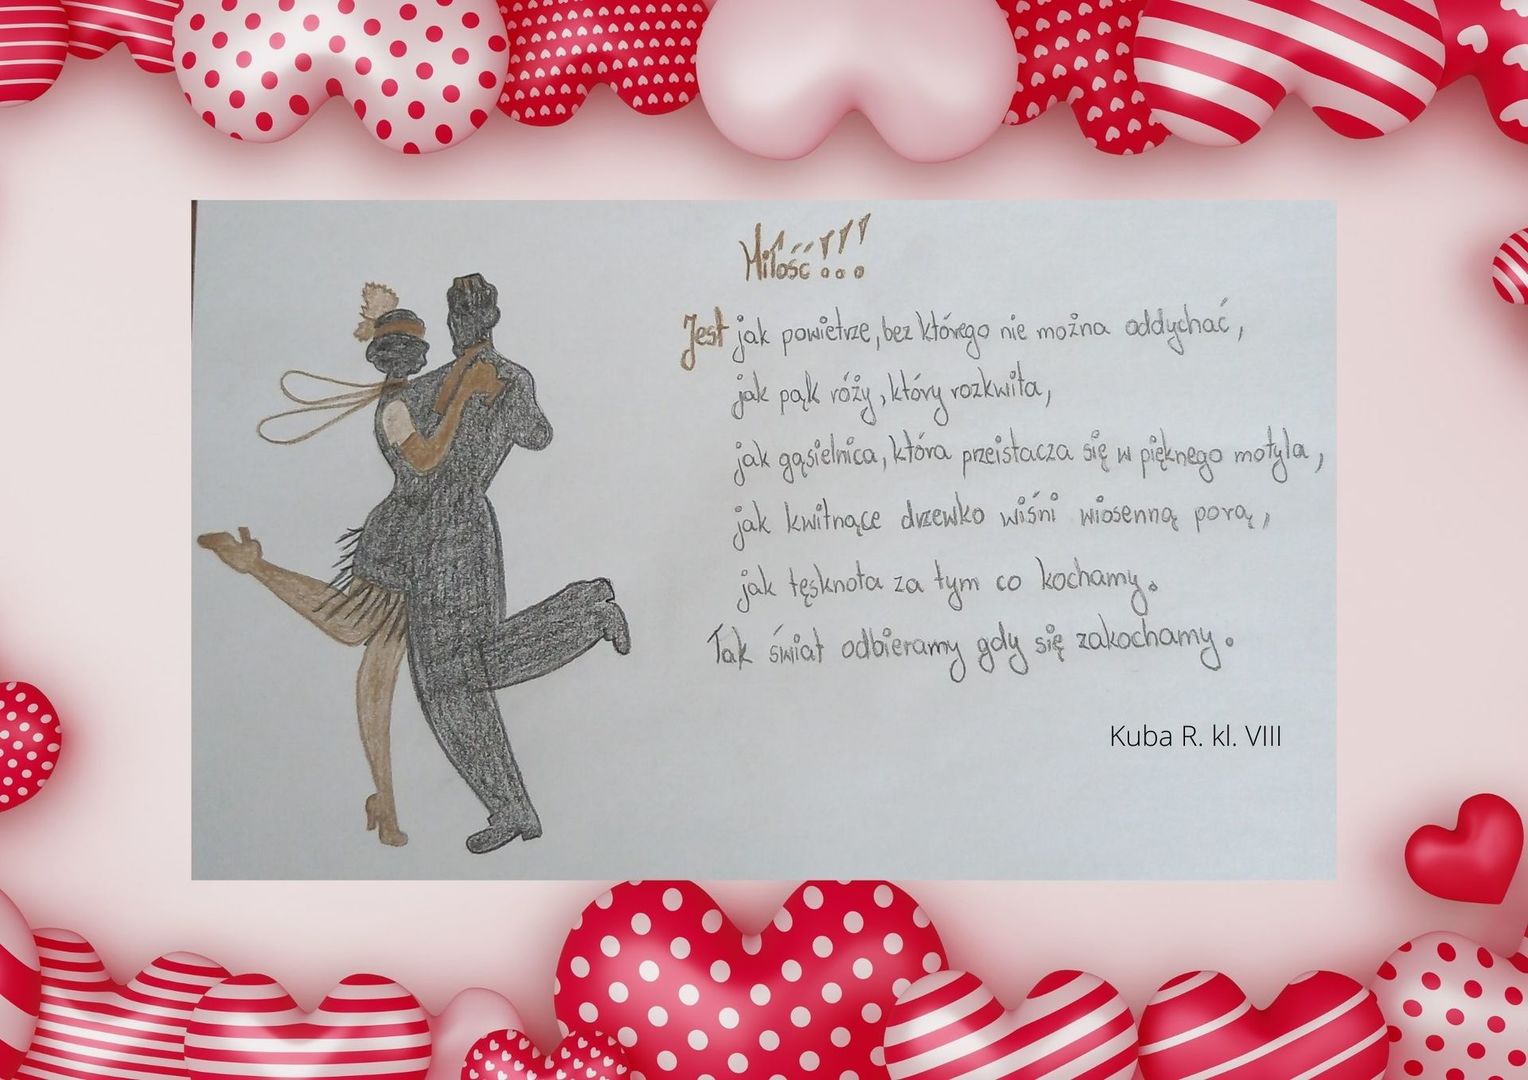 Miłość!!!
Jest jak powietrze, bez którego nie można oddychać,
jak pąk róży, który rozkwita,
jak gąsielnica, która przeistacza się w pięknego motyla,
jak kwitnące drzewko wiśni wiosenną porą,
jak tęsknota za tym co kochamy.
Tak świat odbieramy gdy się zakochamy.
Kuba R. kl. VIII